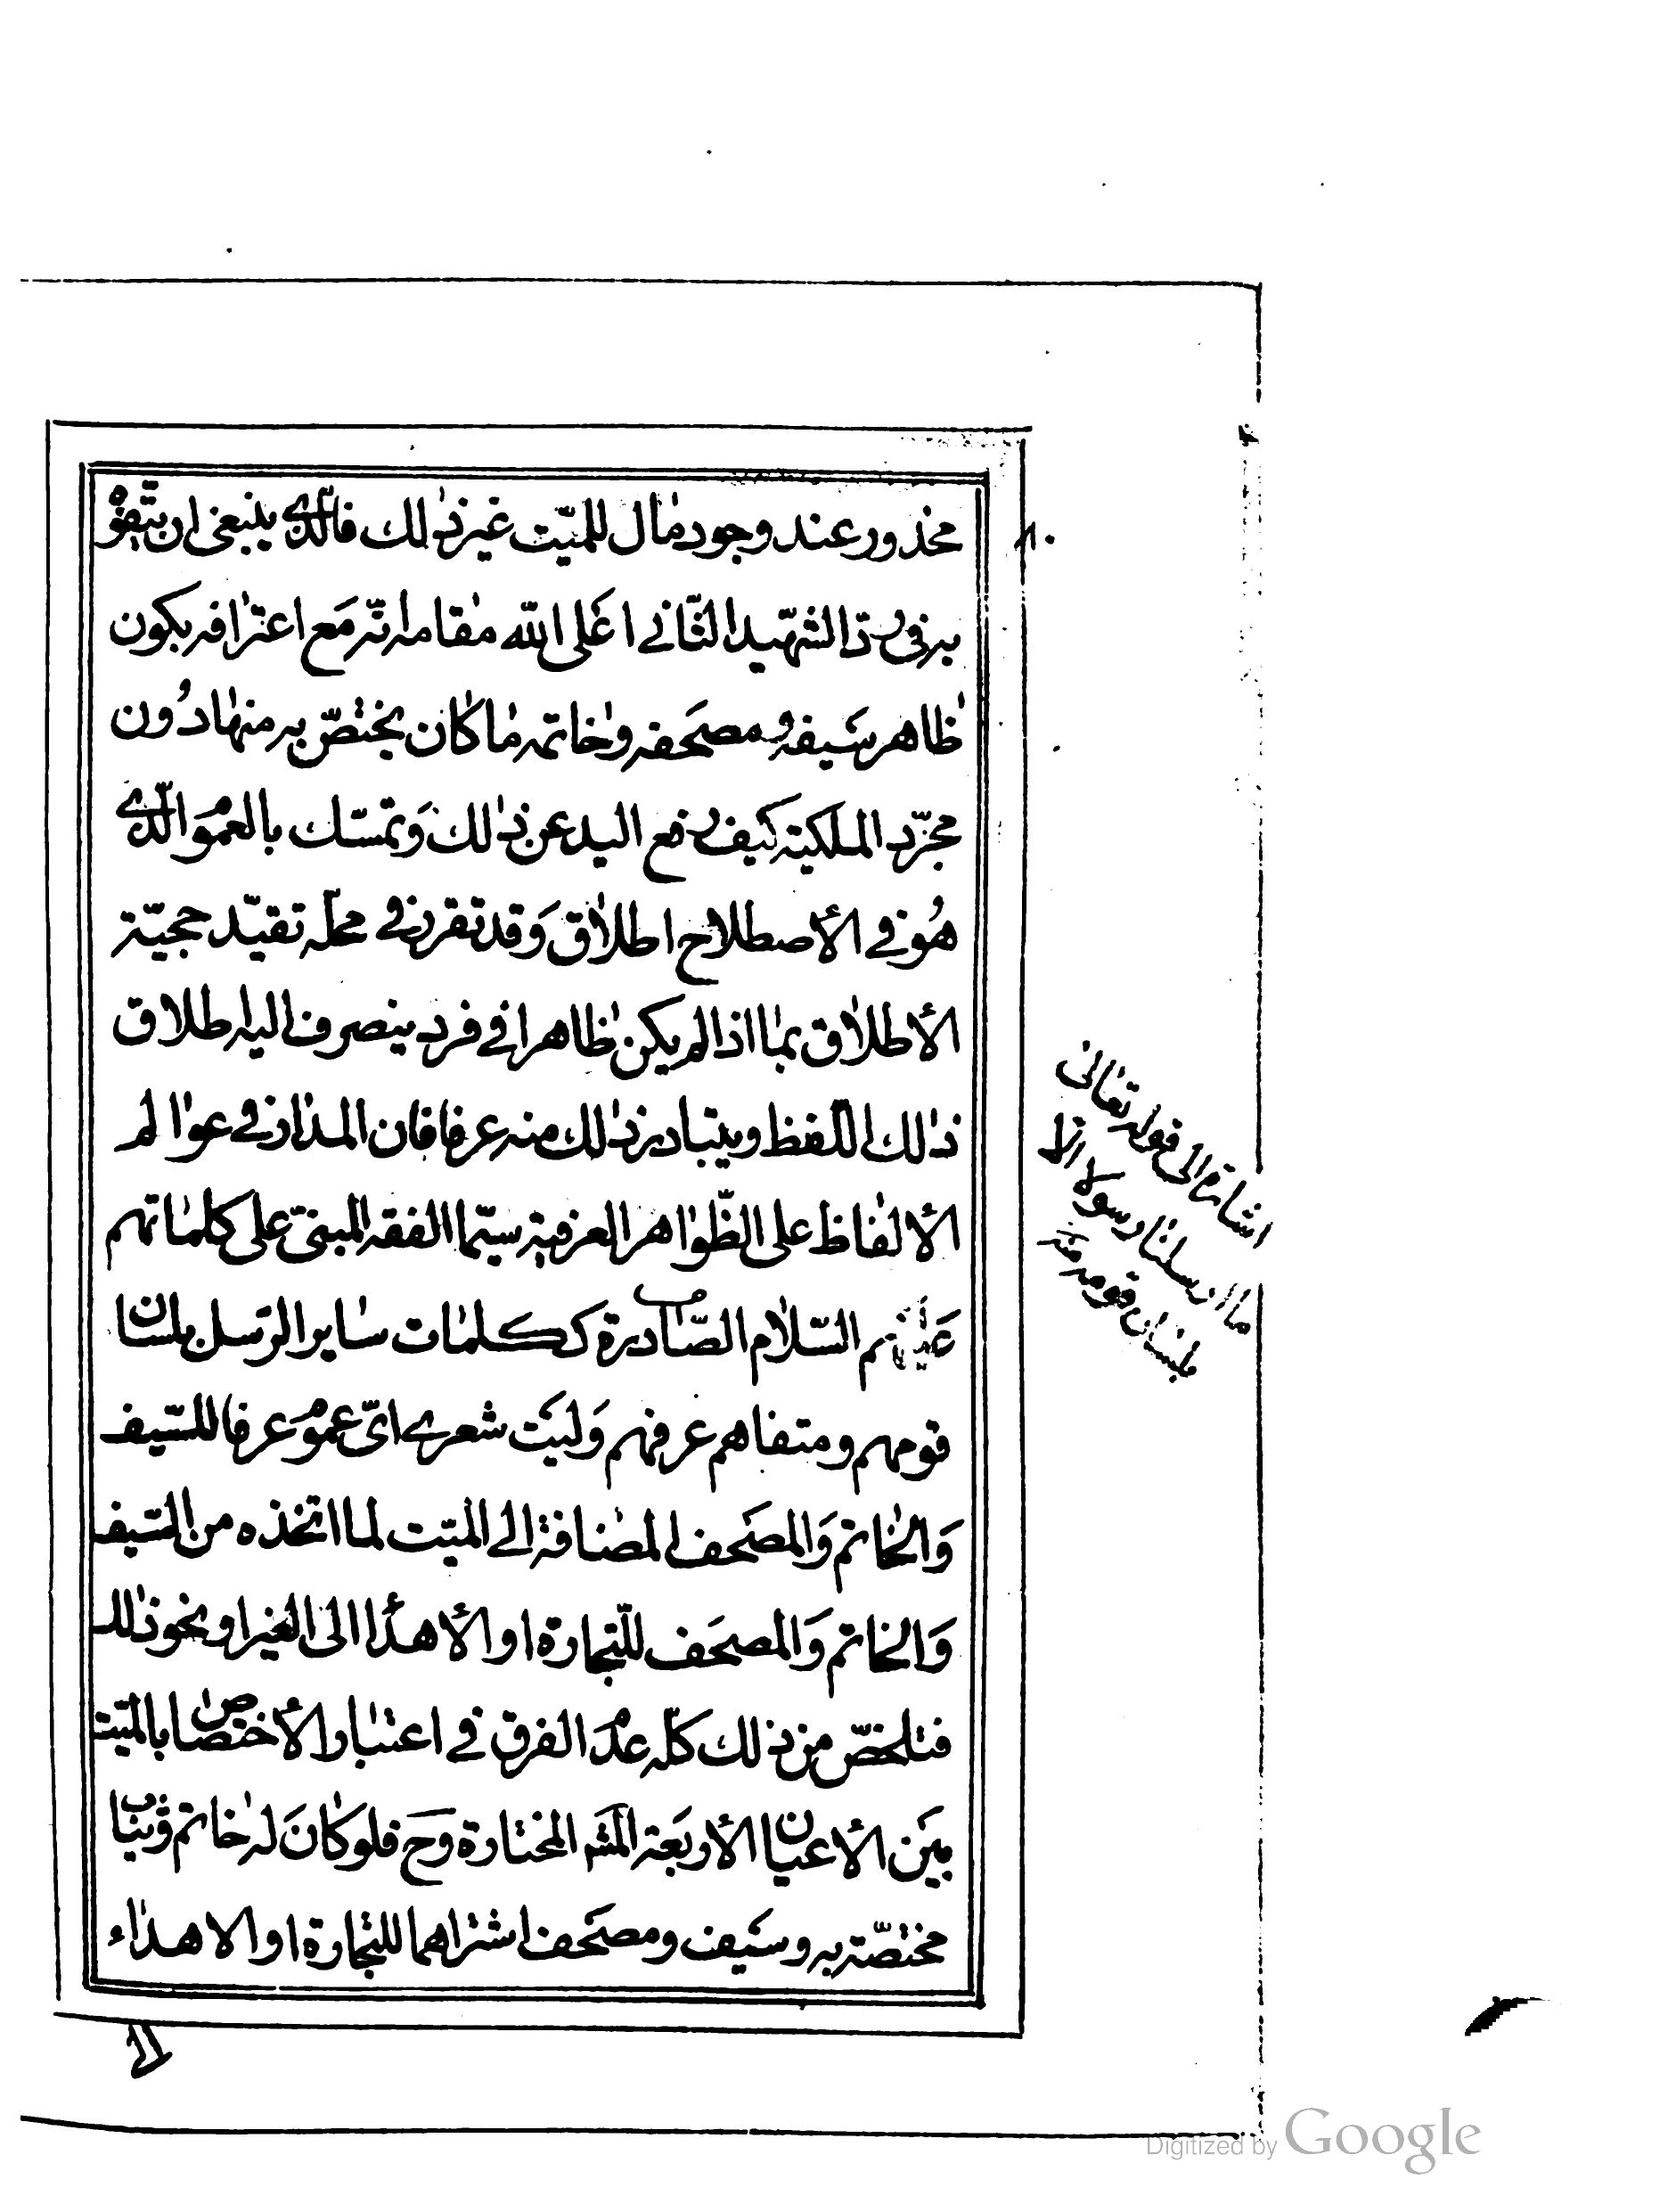 محذور عند وجود مال للميّت غير ذلك فالّذى ينبغى ان يتفوّ
به فى ردّ الشهيد الثانى اعلى الله مقامه انّه مع اعترافه بكون
ظاهر سيفه و مصحفه و خاتمه ما كان يختصّ به منها دون
مجرّد الملكية كيف رفع اليد عن ذلك و تمسّك بالعموم الّذى
هو فى الأصطلاح اطلاق و قد تقرر فى محلّه تقيّد حجيّته
الأطلاق بما اذا لم يكن ظاهرا فى فرد ينصرف اليه اطلاق
ذلك اللفظ و يتبادر ذلك منه عرفا فان المدار فى عوالم
الألفاظ على الظّواهر العرفية سيّما الفقه المبنىّ على كلماتهم
عليهم السّلام الصّادرة ككلمات ساير الرّسل بلسان
قومهم و متفاهم عرفهم و ليت شعرى اىّ عموم عرفا للسّيف
و الخاتم و المصحف المضافة الى الميّت لما اتخذه من السّيف
و الخاتم و المصحف للتجارة او الأهدأ الى الغير او نحو ذلك
فتلخصّ من ذلك كلّه عدم الفرق فى اعتبار الأختصاص بالميّت
بين الأعيان الأربعة المش المختارة و ح فلو كان له خاتم و ثياب
مختصّة به و سيف و مصحف اشتراهما للتجارة او الاهداء
اشارة الى قوله تعالى
ما ارسلنا رسولا الا
بلسان قومه منه
Digitized by Google